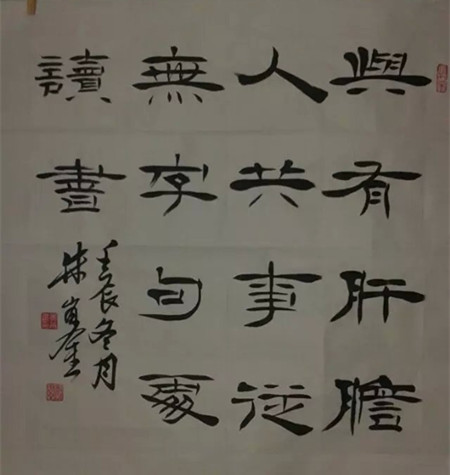 與有肝膽
人共事從
無字句處
讀書
壬辰冬月
朱